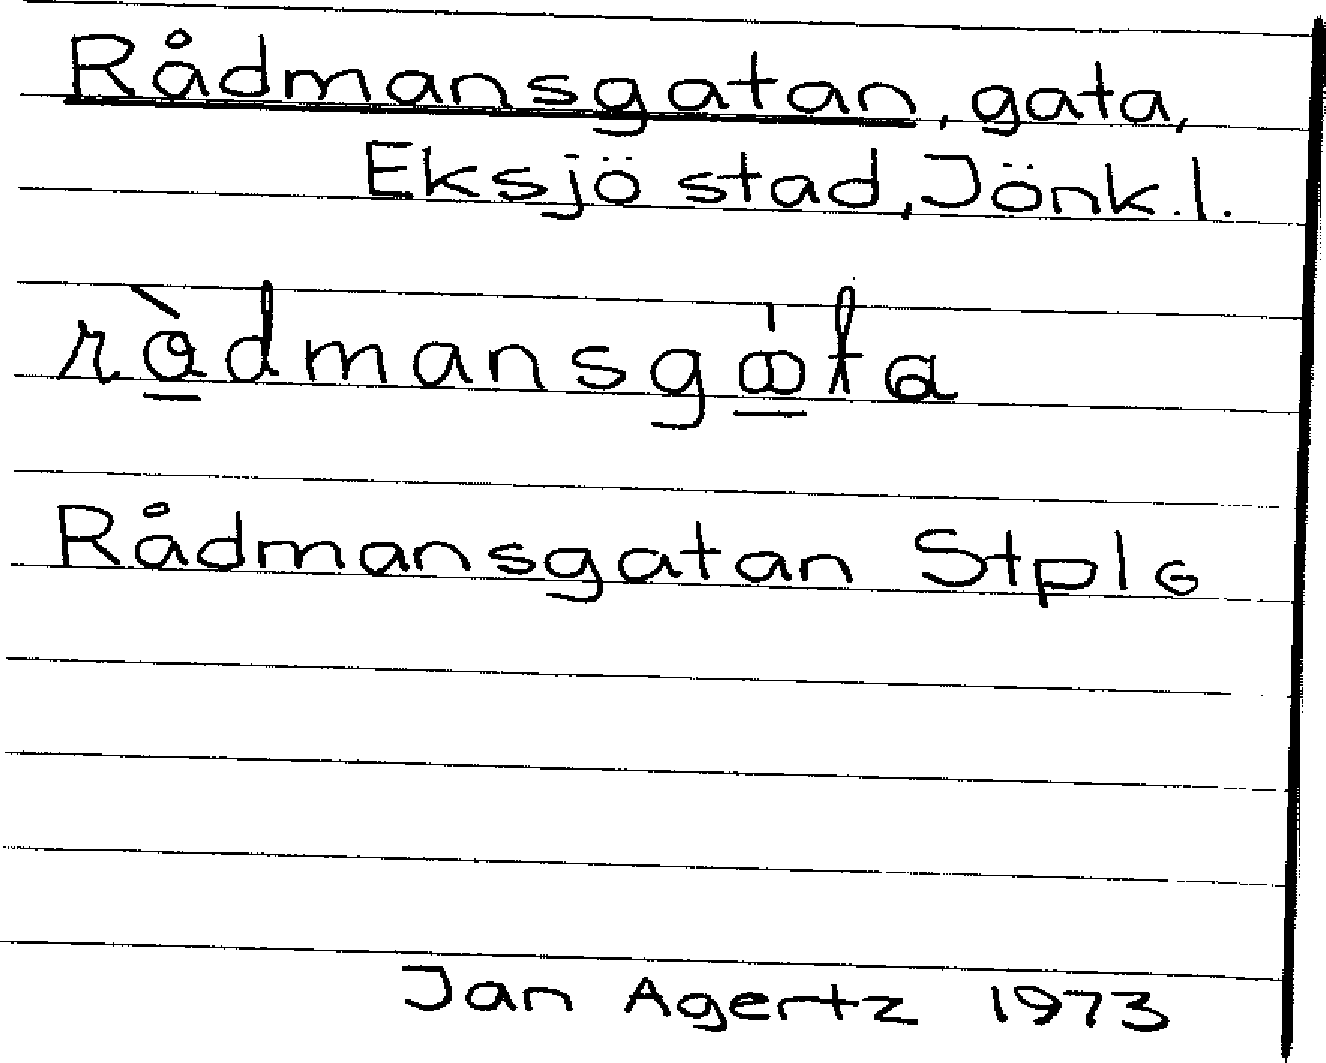 Rådmansgatan, gata,
Eksjö stad, Jönk.l.
rådmansgata
Rådmansgatan Stpl
Jan Agertz 1973